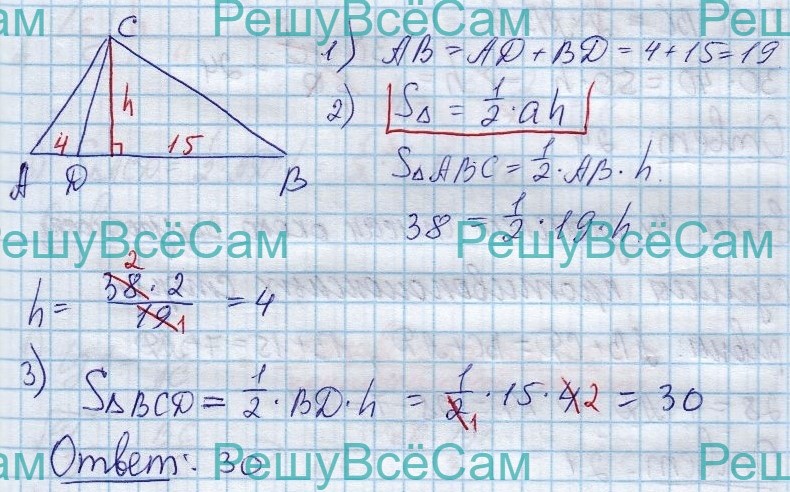 РешуВсёСам
C
h
4
15
A D B
1) AB = AD + BD = 4 + 15 = 19
2) S△ = 1/2 · ah
S△ABC = 1/2 · AB · h
38 = 1/2 · 19 · h
РешуВсёСам РешуВсёСам
h = 38 2 · 2 / 19 1 = 4
3) S△BCD = 1/2 · BD · h = 1/2 1 · 15 · 4 2 = 30
Ответ: 30
РешуВсёСам